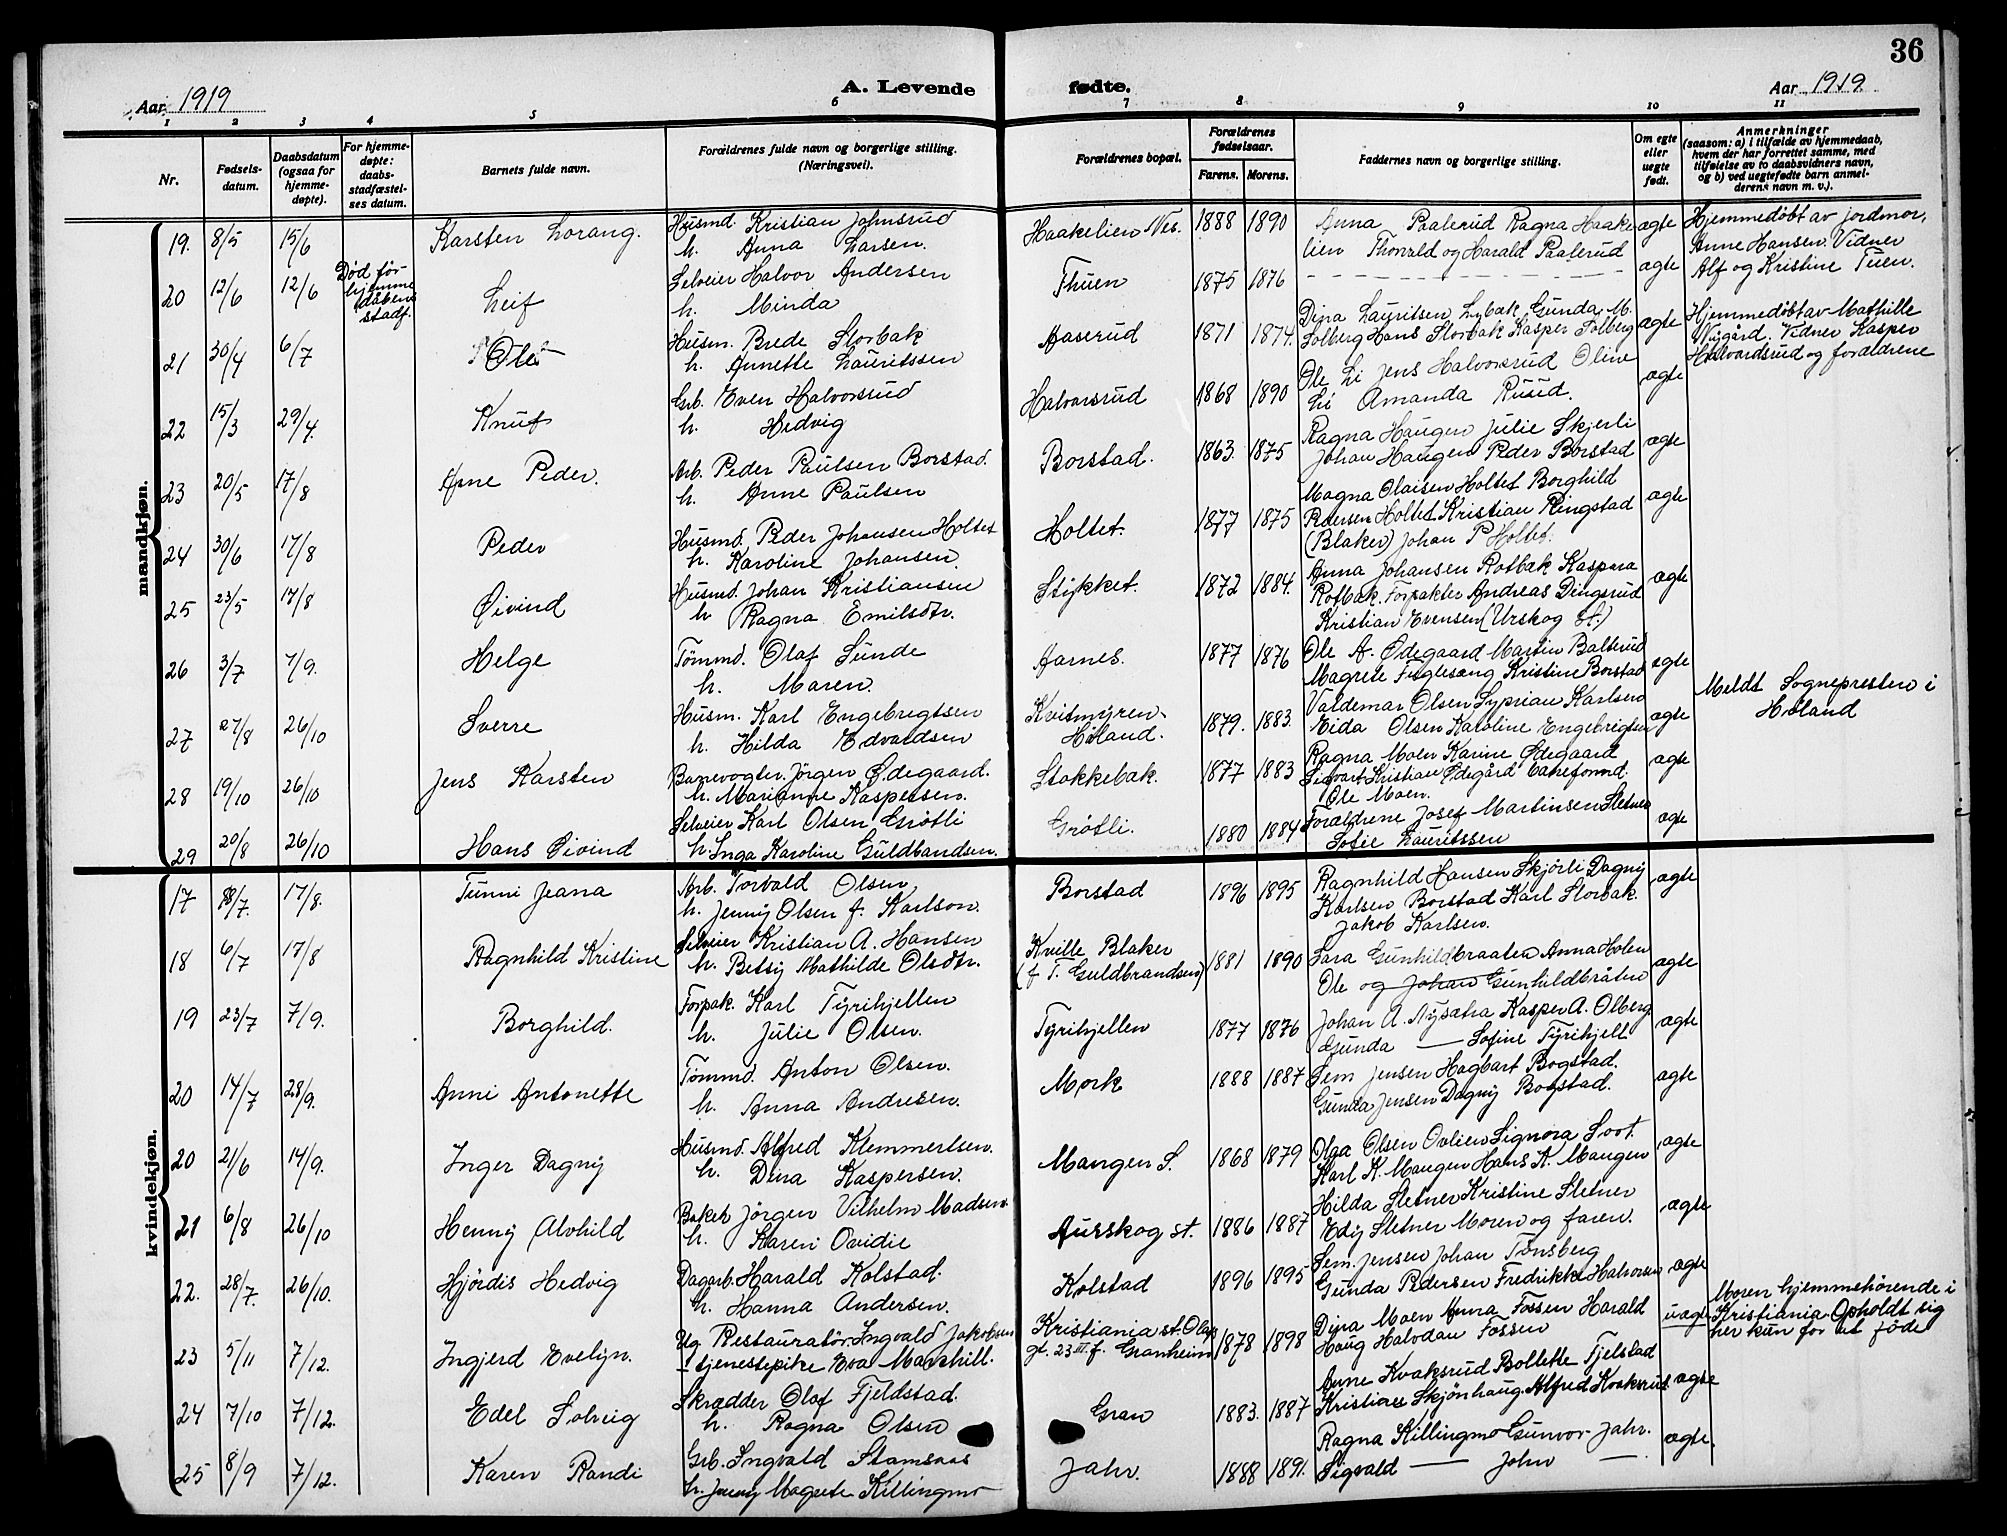 36
Aar 1919
A. Levende fødte.
Aar 1919
1 2 3 4 5 6 7 8 9 10 11
Nr.
Fødsels-
datum.
Daabsdatum
(ogsaa for
hjemme-
døpte).
For hjemme-
døpte:
daabs-
stadfæstel-
ses datum.
Barnets fulde navn.
Forældrenes fulde navn og borgerlige stilling.
(Næringsvei).
Forældrenes bopæl.
Forældrenes
fødselsaar.
Farens. Morens.
Faddernes navn og borgerlige stilling.
Om egte
eller
uegte
født.
Anmerkninger
(saasom: a) i tilfælde av hjemmedaab,
hvem der har forrettet samme, med
tilføielse av to daabsvidners navn,
og b) ved uegtefødte barn anmel-
derens navn m. v.).
mandkjøn.
19. 8/5 15/6 Karsten Lorang. Husmd. Kristian Johnsrud
h. Anna Larsen. Haakelien Nes. 1888 1890 Anna Paalerud Ragna Haake
lien Thorvald og Harald Paalerud ægte Hjemmedøbt av jordmor,
Anne Hansen. Vidner
Alf og Kristine Tuen.
20 12/6 12/6 Død før
hjemme
dåbens
stadf. Leif Selveier Halvor Andersen
h. Minda Thuen 1875 1876 ægte
21 30/4 6/7 Ole Husm. Brede Storbak
h. Annette Lauritssen Aaserud 1871 1874. Dina Lauritsen Lybak Gunda M.
Solberg Hans Storbak Kasper Tolberg ægte Hjemmedøbt av Mathilde
Nygård. Vidner Kasper
Halvardsrud og forældrene
22 15/3 29/4. Knut Grb. Even Halvorsrud
h. Hedvig Halvorsrud 1868 1890 Ole Li Jens Halvorsrud Oline
Li Amanda Ruud. ægte
23 20/5 17/8 Arne Peder. Arb. Peder Paulsen Borstad.
h. Anne Paulsen Borstad. 1863 1875 Ragna Haugen Julie Skjerli
Johan Haugen Peder Borstad ægte
24 30/6 17/8 Peder Husmd. Peder Johansen Holtet
h. Karoline Johansen. Holtet. 1877 1875 Magna Olaisen Holtet Borghild
Pedersen Holtet Kristian Ringstad
(Blaker) Johan P Holtet. ægte
25 23/5 17/8 Øivind Husmd. Johan Kristiansen
h Ragna Emilsdtr. Stykket. 1872 1884. Anna Johansen Rotbak Kaspara
Rotbak. Forpakter Andreas Dingsrud
Kristian Evensen (Urskog st.) ægte
26 3/7 7/9. Helge Tømmd. Olaf Sunde
h. Maren. Aarnes. 1877 1876 Ole A. Ødegaard Martin Balterud
Magrete Fuglesang Kristine Borstad ægte
27 27/8 26/10 Sverre Husm. Karl Engebrigtsen
h. Hilda Edvardsen Kvitmyren
Høland. 1879. 1883. Valdemar Olsen Syprian Karlsen
Eida Olsen Karoline Engebrigtsen ægte Meldt Sognepresten i
Høland
28 19/10 26/10 Jens Karsten Banevogter. Jørgen Ødegaard.
h. Marianne Kaspersen. Stokkebak. 1877 1883 Ragna Moen Karine Ødegaard
Sigvart Kristian Ødegård baneformd.
Ole Moen. ægte
29 20/8 26/10 Hans Øivind Selveier Karl Olsen Grøtli
h. Inga Karoline Guldbandsen. Grøtli. 1880 1884 Forældrene Josef Martinsen Sletner
Sofie Lauritssen ægte
kvindekjøn.
17 18/7. 17/8. Tunni Jeana Arb. Torvald Olsen
h. Jenny Olsen f. Karlson. Borstad 1896 1895 Ragnhild Hansen Skjørli Dagny
Karlsen Borstad Karl Storbak.
Jakob Karlsen. ægte
18 6/7 17/8 Ragnhild Kristine Selveier Kristian A. Hansen
h. Betsy Mathilde Olsdtr. Kville Blaker
(f T. Guldbrandsen) 1881 1890 Sara Gunhildbraaten Anna Holen
Ole og Johan Gunhildbråten ægte
19 23/7 7/9. Borghild. Forpak. Karl Tyrihjellen
h. Julie Olsen. Tyrihjellen 1877 1876 Johan A. Nysætra Kasper A. Olberg
Gunda — Sofine Tyrihjell ægte
20 14/7 28/9. Anni Antonette Tømmd. Anton Olsen.
h. Anna Andresen. Mork 1888 1887 Sem Jensen Hagbart Bogstad.
Gunda Jensen Dagny Bogstad. ægte
20 21/6 14/9. Inger Dagny Husmd. Alfred Klemmertsen.
h. Dina Kaspersen. Mangen S. 1868 1879 Olga Olsen Ovlien Signora Soot.
Karl K. Mangen Hans K. Mangen ægte
21 6/8 26/10 Henny Alvhild Baker Jørgen Vilhelm Madsen.
h. Karen Ovidie Aurskog st. 1886 1887 Hilda Sletner Kristine Sletner
Edy Sletner Moren og faren. ægte
22. 28/7. 26/10. Hjørdis Hedvig Dagarb. Harald Kolstad.
h. Hanna Andersen. Kolstad 1896 1895 Sem. Jensen Johan Tønsberg
Gunda Pedersen Fredrikke Halvorsen ægte
23 5/11 7/12. Ingjerd Evelyn. Ug. Restauratør. Ingvald Jakobsen
tjenestepike Eva Marshill. Kristiania st. Olavs
gt. 23 III f. Granheim 1878 1898 Dina Moen Anna Fossen Harald
Haug Halvdan Fossen uægte Moren hjemmehørende i
Kristiania. Opholdt sig
her kun for at føde
24 7/10 7/12. Edel Solveig Skrædder Olaf Fjeldstad.
h. Ragna Olsen Gran 1883. 1887 Anne Kvaksrud Bollette Fjelstad
Kristian Skjønhaug. Alfred Kvaksrud ægte
25 8/9 7/12. Karen Randi Grb. Ingvald Stamsaas
h. Jenny Magrete Killingmo Jahr. 1888 1891. Ragna Killingmo Gunvor Jahr.
Sigvald — John — ægte.